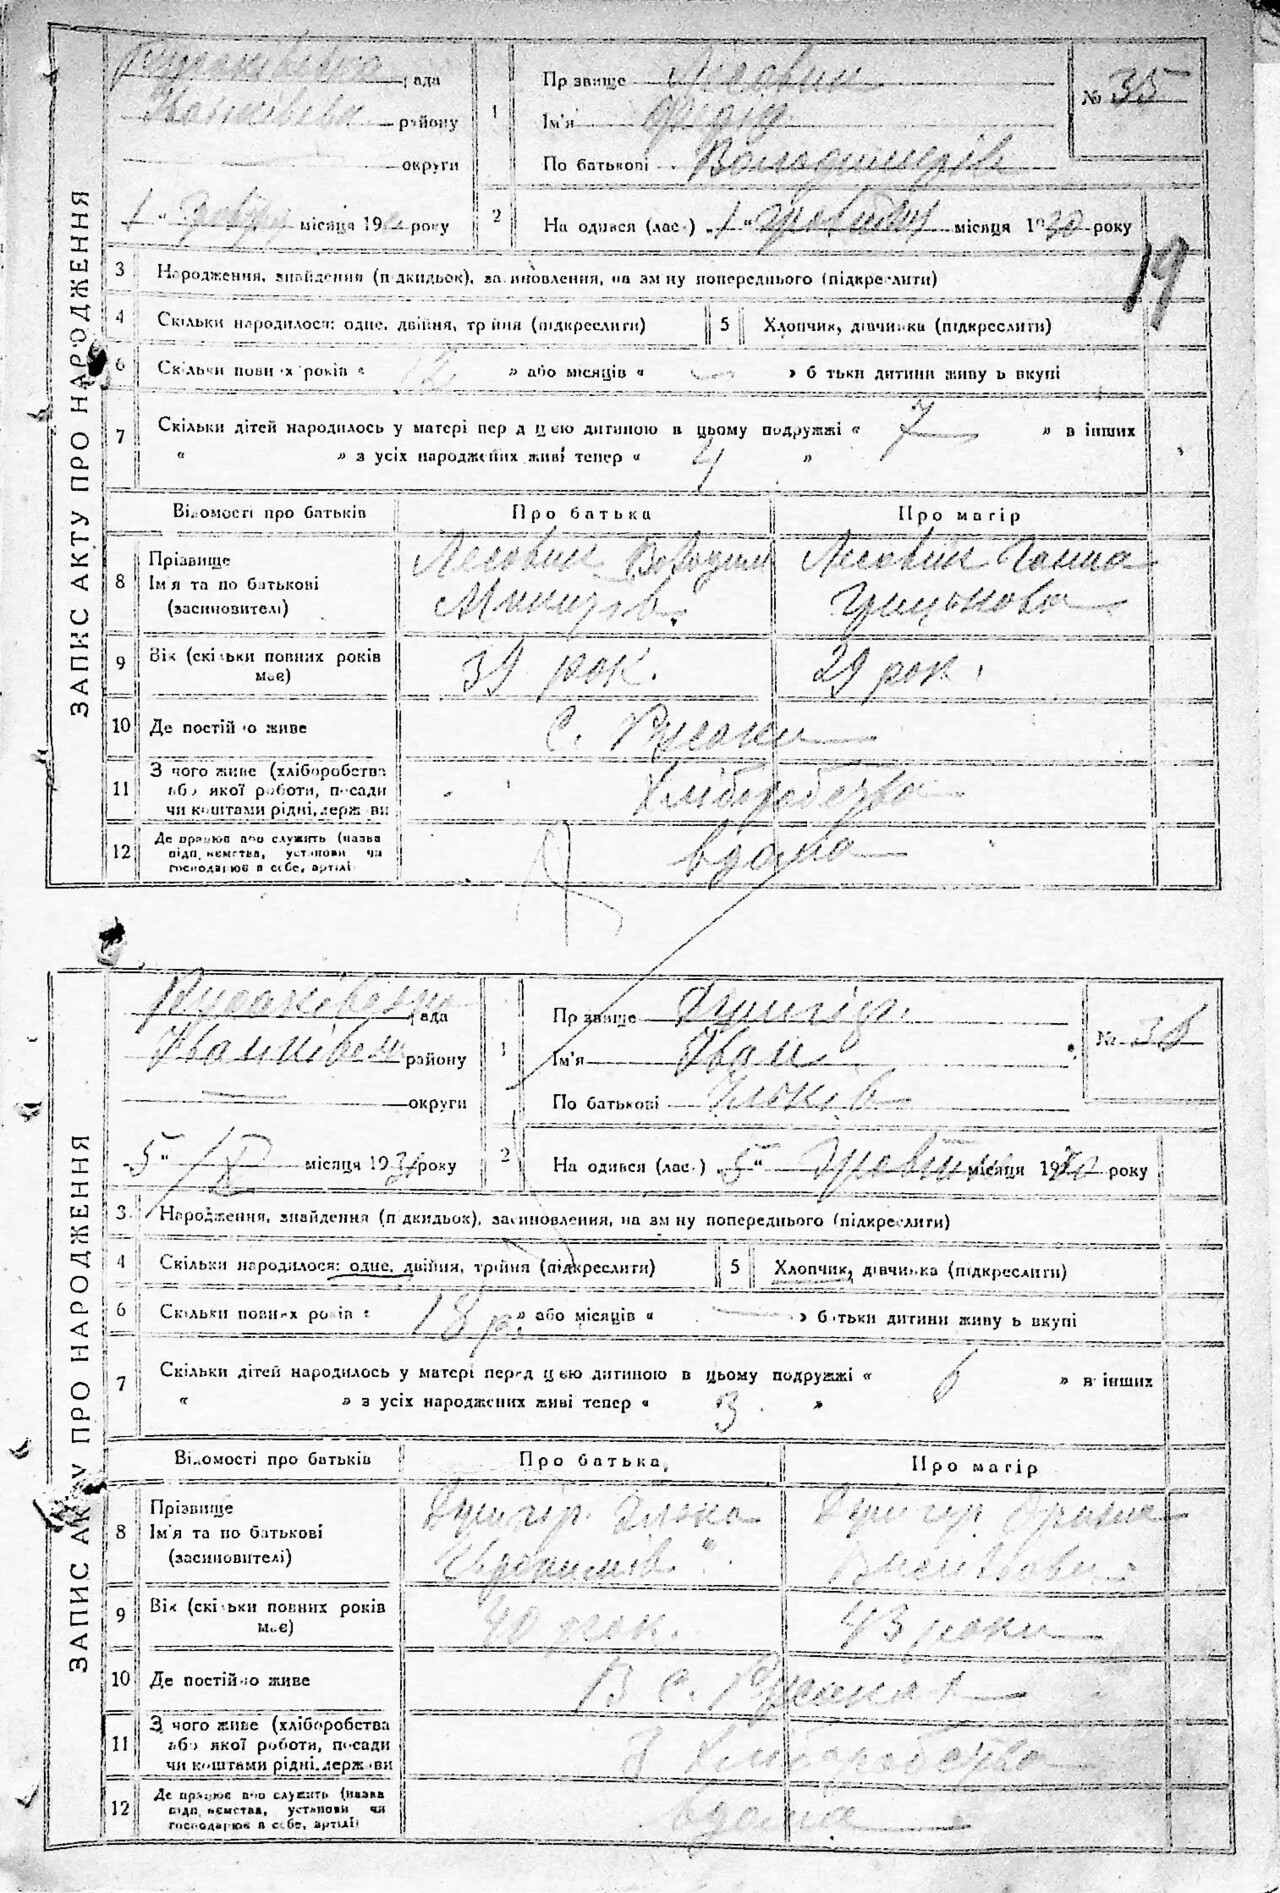 ЗАПИС АКТУ ПРО НАРОДЖЕННЯ
рада
району
округи
1 " місяця 19 року
1
Прізвище Лісовик
Ім'я
По батькові Володимирів
№ 35
2
На одився (лас ) „ 1 " місяця 1930 року
19
3 Народження, знайдення (підкидьок), засиновлення, на зміну попереднього (підкреслити)
4 Скільки народилося: одне, двійня, трійня (підкреслити)
5 Хлопчик, дівчинка (підкреслити)
6 Скільки повних років « 12 » або місяців « — » батьки дитини живуть вкупі
7 Скільки дітей народилось у матері перед цією дитиною в цьому подружжі « 7 » в інших
« » з усіх народжених живі тепер « 4 »
Відомості про батьків
Про батька
Про матір
8 Прізвище
Ім'я та по батькові
(засиновителі)
Лесовик Володим
Лесовик Ганна
Грицькова
9 Вік (скільки повних років
має)
39 рок.
29 рок.
10 Де постійно живе
с. Русаки
11 З чого живе (хліборобства
або якої роботи, посади
чи коштами рідні, держави
Хліборобства
12 Де працює або служить (назва
підприємства, установи чи
господарює в себе, артілі
вдома
ЗАПИС АКТУ ПРО НАРОДЖЕННЯ
Русаківська рада
Іванківськ району
округи
5 " IX місяця 1930 року
1
Прізвище
Ім'я Іван
По батькові Ільків
№ 38
2
На одився (лас ) „ 5 " місяця 1930 року
3 Народження, знайдення (підкидьок), засиновлення, на зміну попереднього (підкреслити)
4 Скільки народилося: одне, двійня, трійня (підкреслити)
5 Хлопчик, дівчинка (підкреслити)
6 Скільки повних років « 18 р. » або місяців « — » батьки дитини живуть вкупі
7 Скільки дітей народилось у матері перед цією дитиною в цьому подружжі « 6 » в інших
« » з усіх народжених живі тепер « 3 »
Відомості про батьків
Про батька
Про матір
8 Прізвище
Ім'я та по батькові
(засиновителі)
9 Вік (скільки повних років
має)
40 рок.
43 роки
10 Де постійно живе
В с. Русаках
11 З чого живе (хліборобства
або якої роботи, посади
чи коштами рідні, держави
З Хліборобства
12 Де працює або служить (назва
підприємства, установи чи
господарює в себе, артілі)
вдома